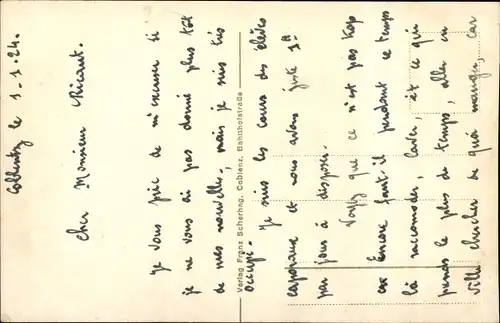 Coblentz le 1-1.24.
Cher Monsieur Ricaut.
Je vous prie de m'excuser si
je ne vous ai pas donné plus tôt
de mes nouvelles, mais je suis très
occupé.
Verlag Franz Scherhag, Coblenz, Bahnhofstraße
Je suis les cours des élèves
caporaux et nous avons juste 1h
par jour à disposer.
Voyez que ce n'est pas trop
car Encore faut-il pendant ce temps
là raccomoder, laver, et ce qui
prend le plus de temps, aller en
ville chercher de quoi manger, car